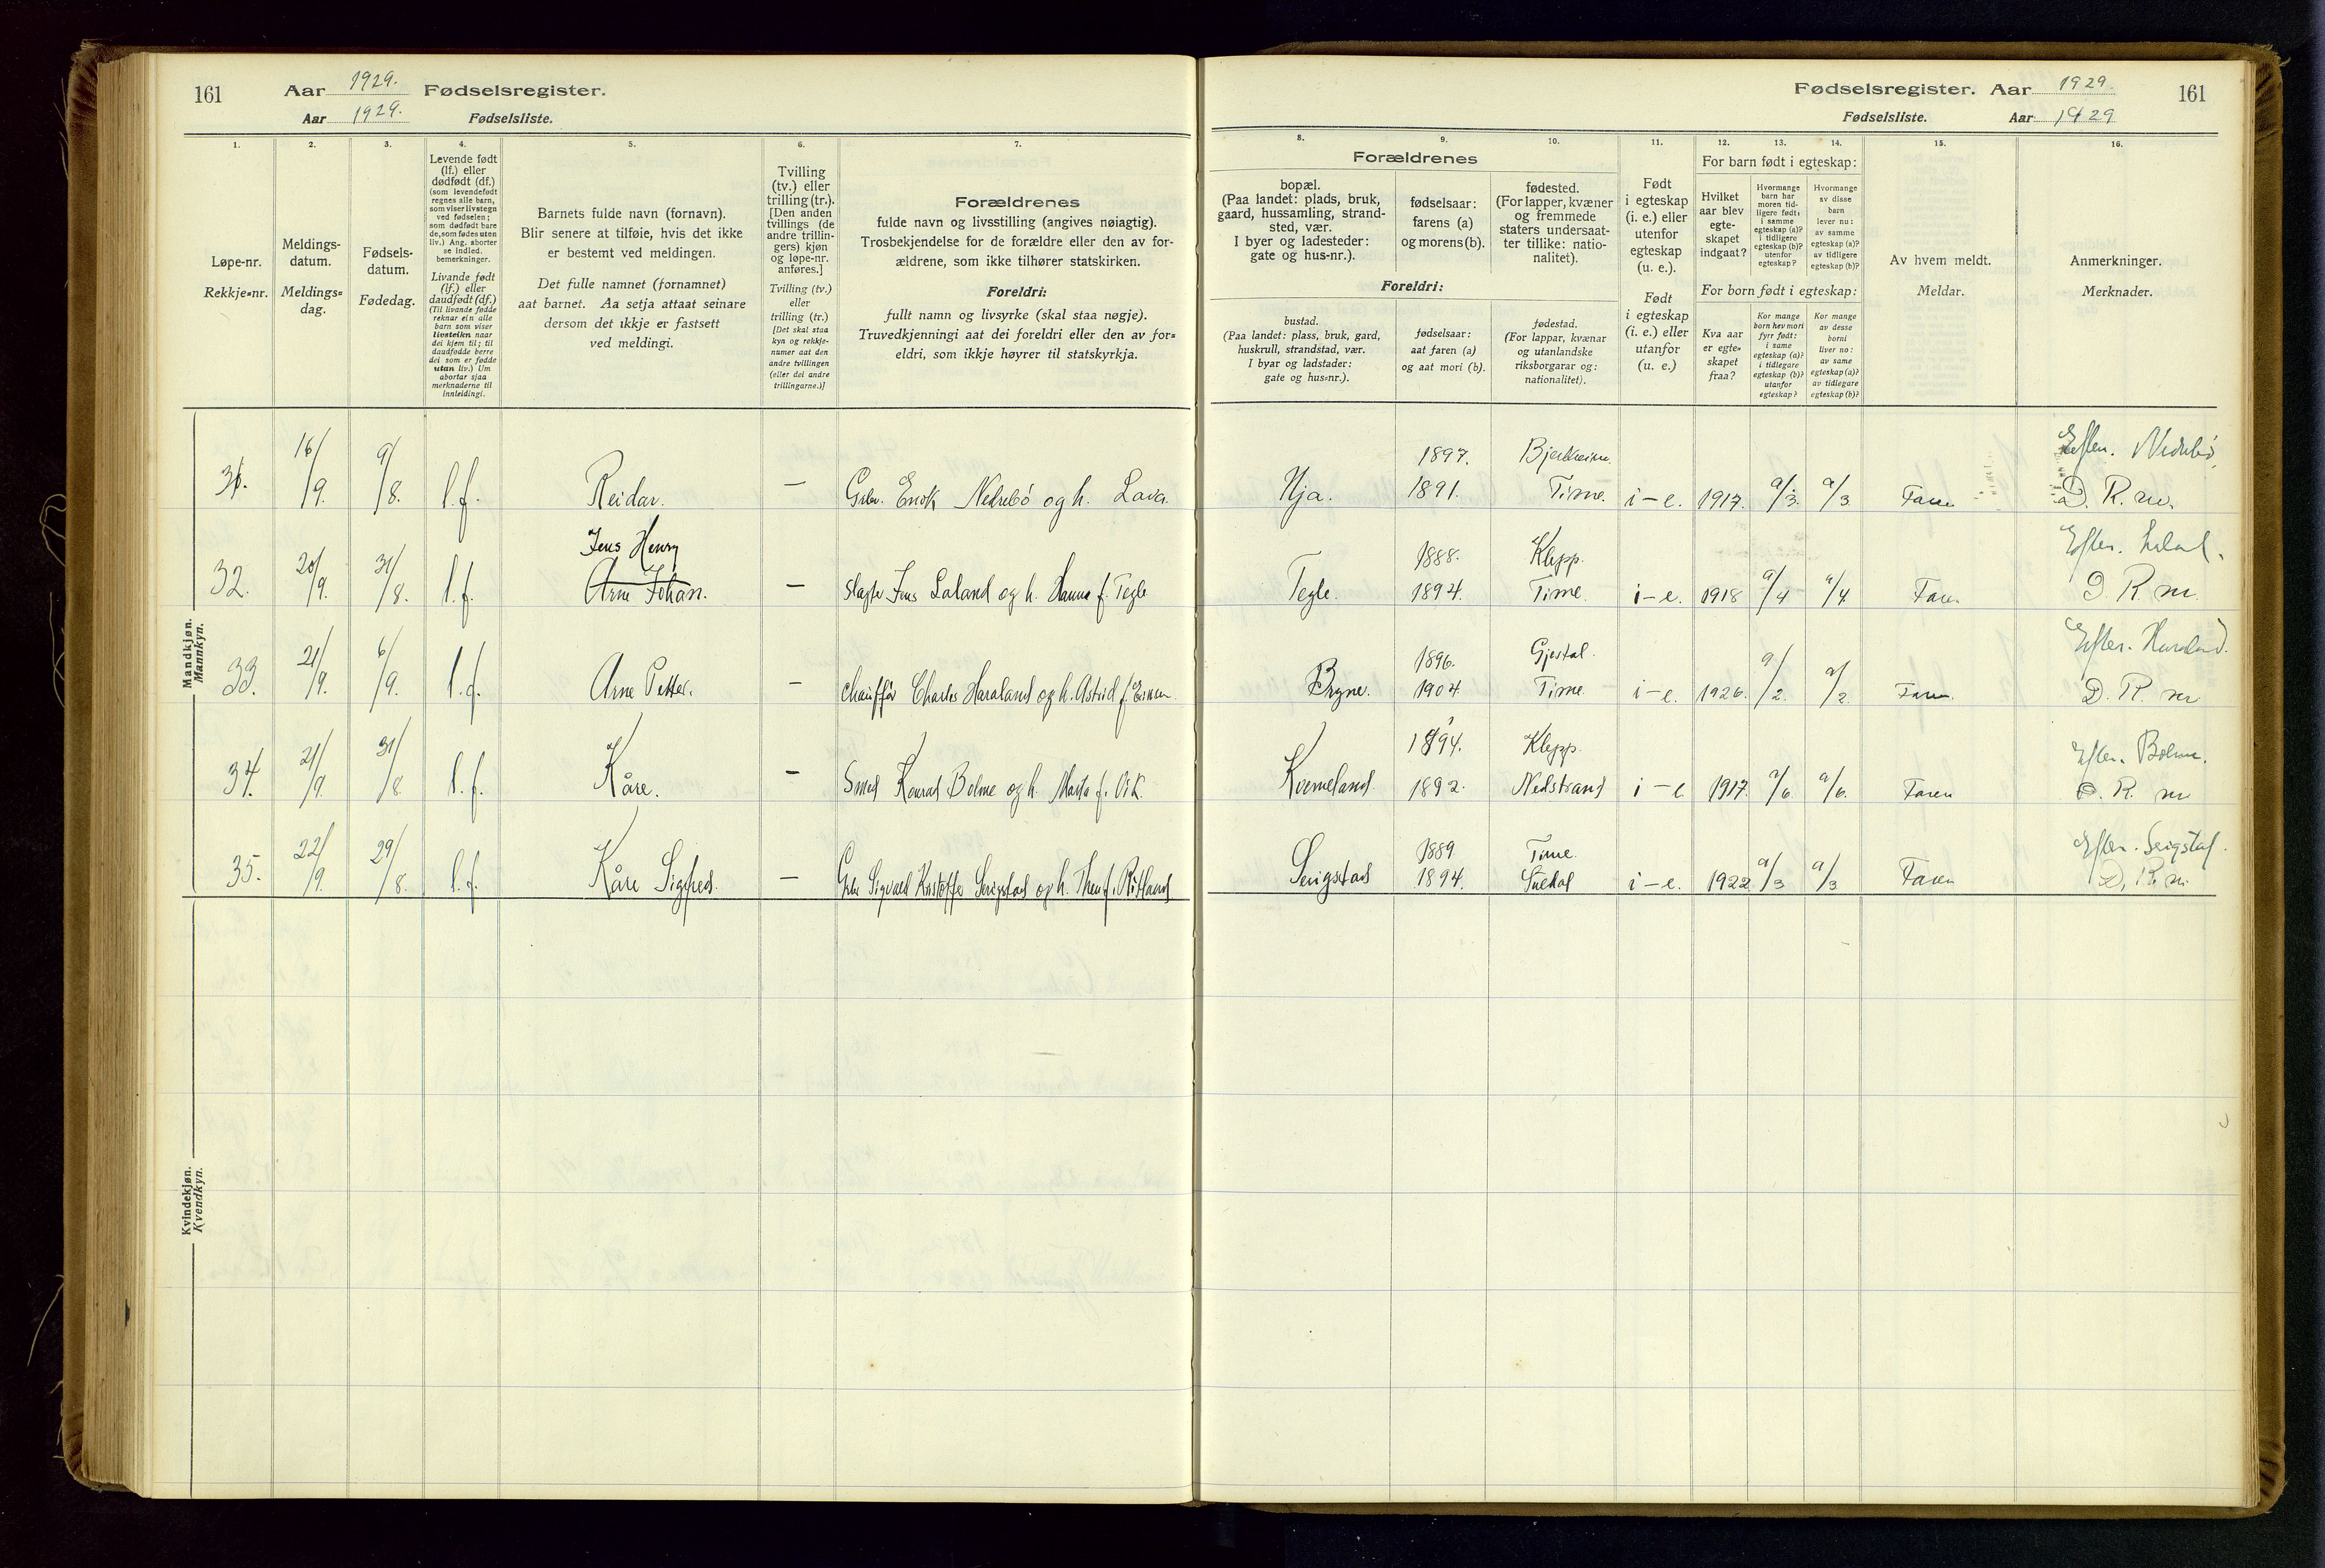 161 Aar 1929. Fødselsregister.
Aar 1929. Fødselsliste.
1. 2. 3. 4. 5. 6. 7.
Løpe-nr.
Rekkje=nr.
Meldings-
datum.
Meldings=
dag.
Fødsels-
datum.
Fødedag.
Levende født
(lf.) eller
dødfødt (df.)
(som levendefødt
regnes alle barn,
som viser livstegn
ved fødselen;
som dødfødt bare
de, som fødes uten
liv.) Ang. aborter
se indled.
bemerkninger.
Livande født
(lf.) eller
daudfødt (df.)
(Til livande fødde
reknar ein alle
barn som viser
livsteikn naar
dei kjem til; til
daudfødde berre
dei som er fødde
utan liv.) Um
abortar sjaa
merknaderne til
innleidingi.
Barnets fulde navn (fornavn).
Blir senere at tilføie, hvis det ikke
er bestemt ved meldingen.
Det fulle namnet (fornamnet)
aat barnet. Aa setja attaat seinare
dersom det ikkje er fastsett
ved meldingi.
Tvilling
(tv.) eller
trilling (tr.).
[Den anden
tvillings (de
andre trillin-
gers) kjøn
og løpe-nr.
anføres.]
Tvilling (tv.)
eller
trilling (tr.)
[Det skal staa
kyn og rekkje-
numer aat den
andre tvillingen
(eller dei andre
trillingarne.)]
Forældrenes
fulde navn og livsstilling (angives nøiagtig).
Trosbekjendelse for de forældre eller den av for-
ældrene, som ikke tilhører statskirken.
Foreldri:
fullt namn og livsyrke (skal staa nøgje).
Truvedkjenningi aat dei foreldri eller den av for=
eldri, som ikkje høyrer til statskyrkja.
Mandkjøn.
Mannkyn.
31. 16/9. 9/8. l.f. Reidar. — Grbr. Enok Nedrebø og h. Lava
Jens Henry
32. 20/9. 31/8. l.f. Arne Johan. — Slagter Jens Laland og h. Hanna f. Tegle
33. 21/9. 6/9. l.f. Arne Petter. — Chauffør Charles Haraland og h. Astrid f.
34. 21/9. 31/8. l.f. Kåre. — Smed Konrad Bolme og h. Marta f. Vik.
35. 22/9. 29/8. l.f. Kåre Sigfred. — Grbr Sigvald Kristoffer Serigstad og h. Thea f. Røtland
Kvindekjøn.
Kvendkyn.
Fødselsregister. Aar 1929. 161
Fødselsliste. Aar 1929
8. 9. 10. 11. 12. 13. 14. 15. 16.
Forældrenes
bopæl.
(Paa landet: plads, bruk,
gaard, hussamling, strand-
sted, vær.
I byer og ladesteder:
gate og hus-nr.).
fødselsaar:
farens (a)
og morens (b).
fødested.
(For lapper, kvæner
og fremmede
staters undersaat-
ter tillike: natio-
nalitet).
Foreldri:
bustad.
(Paa landet: plass, bruk, gard,
huskrull, strandstad, vær.
I byar og ladstader:
gate og hus=nr.).
fødselsaar:
aat faren (a)
og aat mori (b).
fødestad.
(For lappar, kvænar
og utanlandske
riksborgarar og:
nationalitet).
Født
i egteskap
(i. e.) eller
utenfor
egteskap
(u. e.).
Født
i egteskap
(i. e.) eller
utanfor
(u. e.)
For barn født i egteskap:
Hvilket
aar blev
egte-
skapet
indgaat?
Hvormange
barn har
moren tid-
ligere født:
i samme
egteskap (a)?
i tidligere
egteskap (b)?
utenfor
egteskap?
Hvormange
av disse
barn
lever nu:
av samme
egteskap (a)?
av tidligere
egteskap (b)?
For born født i egteskap:
Kva aar
er egte=
skapet
fraa?
Kor mange
born hev mori
fyrr født:
i same
egteskap (a)?
i tidlegare
egteskap (b)?
utanfor
egteskap?
Kor mange
av desse
borni
liver no:
av same
egteskap (a)?
av tidlegare
egteskap (b)?
Av hvem meldt.
Meldar.
Anmerkninger.
Merknader.
1897. Bjerkreim. Efter. Nedrebø,
Hja. 1891. Time. i – e. 1917. a/3. a/3 Faren D. R. m.
1888. Klepp. Efter. Laland.
Tegle. 1894. Time. i – e. 1918 a/4 a/4 Faren D R. m.
1896. Gjestal. Efter. Haraland.
Bryne. 1904. Time. i – e. 1926. a/2. a/2. Faren. D. R. m
1894. Klepp. Efter. Bolme.
Kverneland. 1892. Nedstrand i – e 1917. a/6. a/6. Faren D. R. m
1889. Time. Efter. Serigstad.
Serigstad 1894. Suldal i – e. 1922 a/3 a/3 Faren D. R. m.